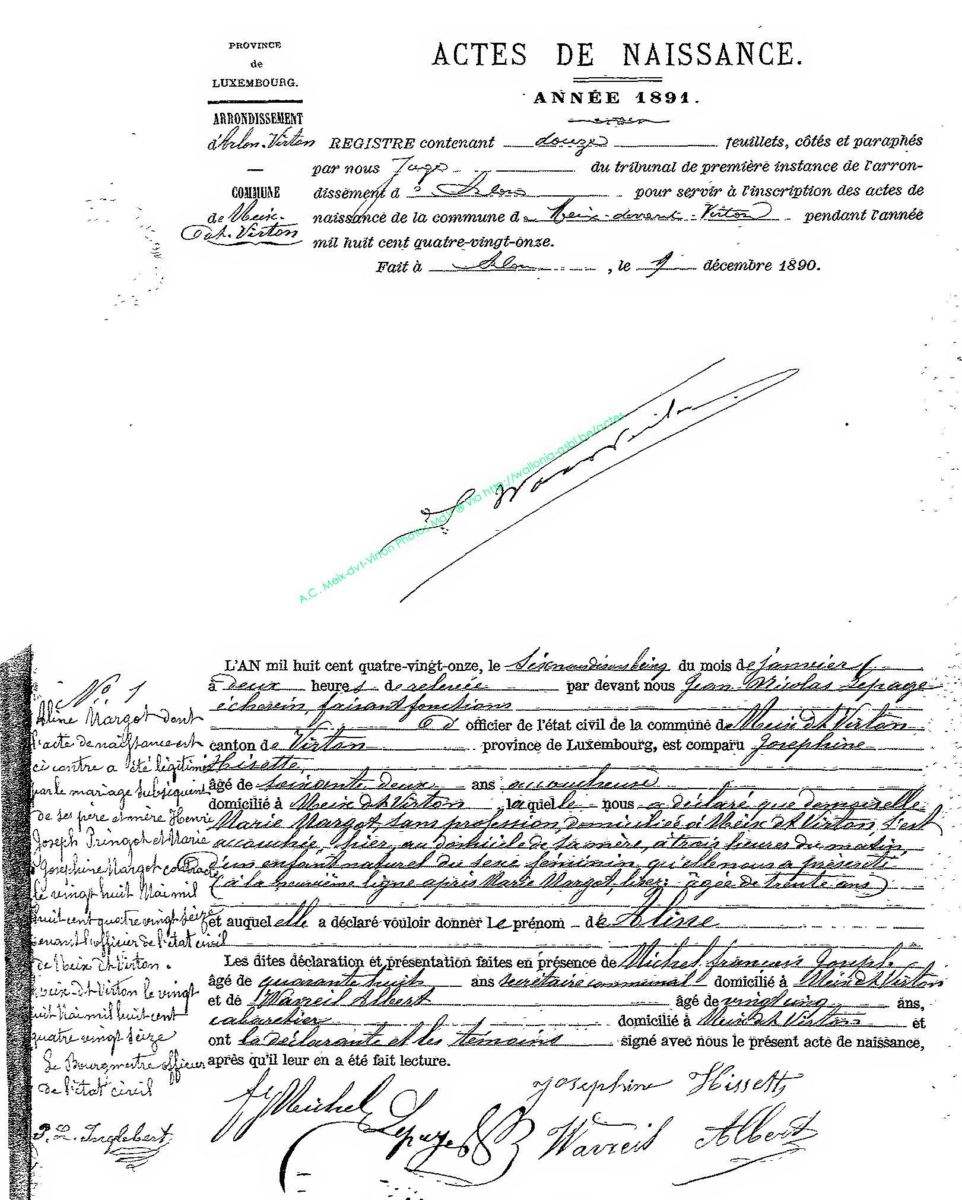 PROVINCE
de
LUXEMBOURG.
ARRONDISSEMENT
d'Arlon-Virton
COMMUNE
de Meix-
dt. Virton
ACTES DE NAISSANCE.
ANNÉE 1891.
REGISTRE contenant douze feuillets, côtés et paraphés
par nous Juge du tribunal de première instance de l'arron-
dissement d'Arlon pour servir à l'inscription des actes de
naissance de la commune de Meix-devant-Virton pendant l'année
mil huit cent quatre-vingt-onze.
Fait à Arlon, le 9 décembre 1890.
A.C. Meix-dvt-Virton Photos via http://wallonia-asbl.be/actes
L'AN mil huit cent quatre-vingt-onze, le du mois de janvier
à deux heures de relevée par devant nous Jean Nicolas Lepage
échevin, faisant fonctions
d'officier de l'état civil de la commune de Meix dt Virton
canton de Virton province de Luxembourg, est comparu Josephine
Hisette,
âgé de soixante deux ans accoucheuse
domicilié à Meix dt Virton laquelle nous a déclaré que demoiselle
Marie Margot, sans profession, domiciliée à Meix dt Virton s'est
accouchée, hier, au domicile de sa mère, à trois heures du matin,
d'un enfant naturel du sexe féminin, qu'elle nous a présenté
(à la neuvième ligne après Marie Margot, lisez: âgée de trente ans)
et auquel elle a déclaré vouloir donner le prénom de Aline
Les dites déclaration et présentation faites en présence de Michel françois Joseph
âgé de quarante huit ans secrétaire communal domicilié à Meix dt Virton
et de Wavreil Albert âgé de vingt cinq ans,
cabaretier domicilié à Meix dt Virton et
ont la déclarante et les témoins signé avec nous le présent acte de naissance,
après qu'il leur en a été fait lecture.
No 1
Aline Margot dont
l'acte de naissance est
ci contre a été légitimée
par le mariage subséquent
de ses père et mère Henri
Joseph Pringot et Marie
Josephine Margot contracté
le vingt huit Mai mil
huit cent quatre vingt seize
devant l'officier de l'état civil
de Meix dt Virton.
Meix-dt Virton le vingt
huit Mai mil huit cent
quatre vingt seize
Le Bourgmestre officier
de l'état civil
Inglebert
fJ Michel
Lepage
Josephine Hisette
Wavreil Albert